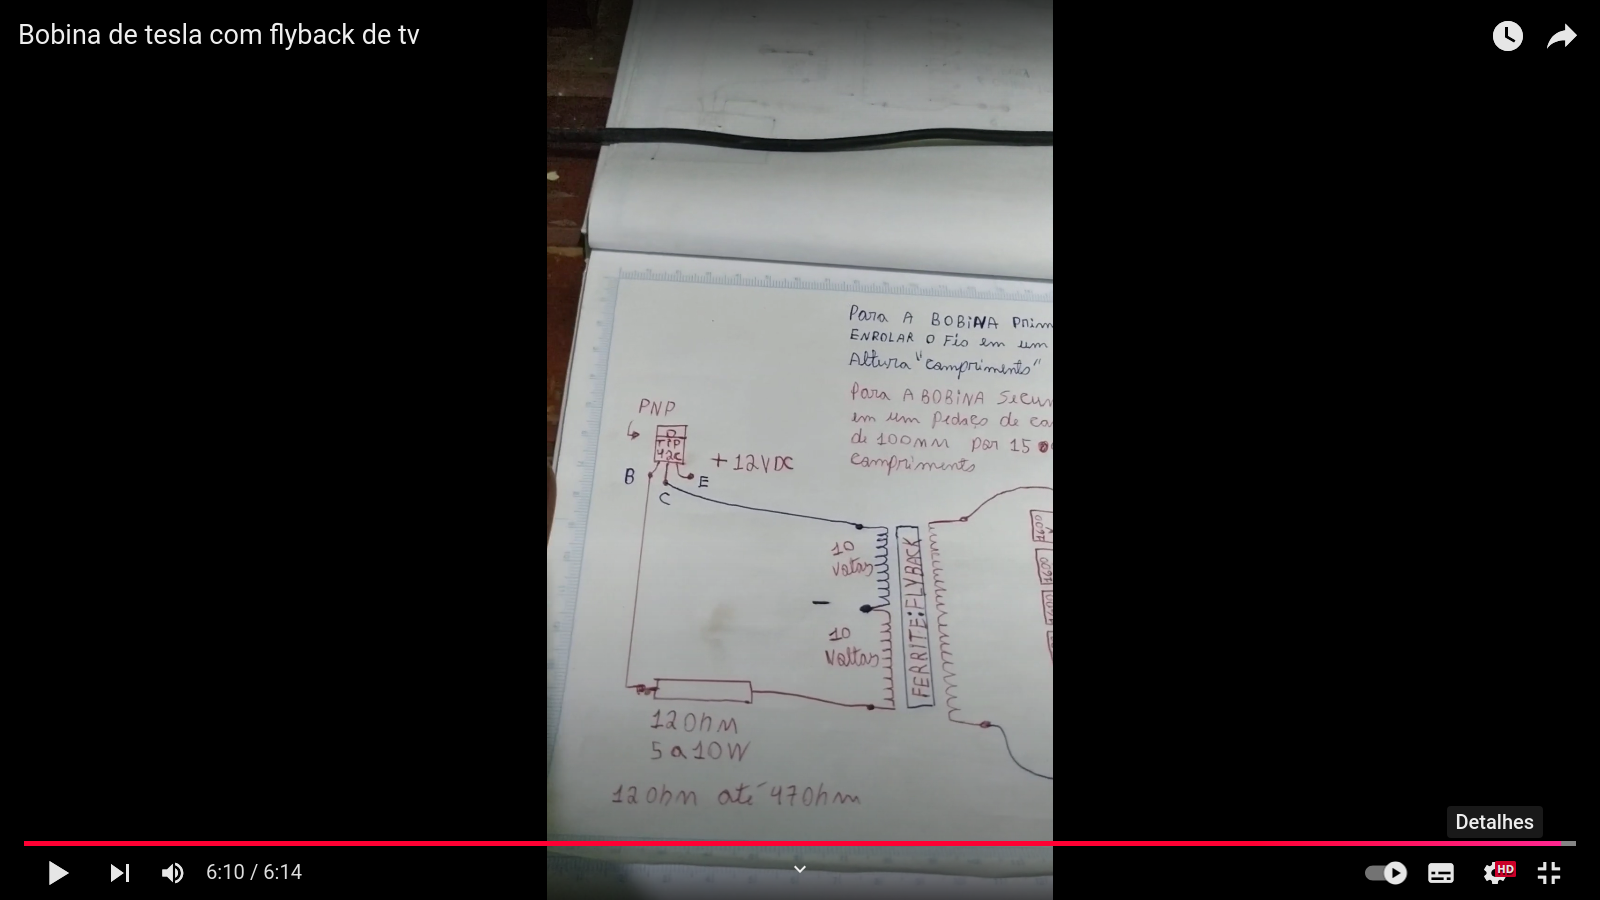 Bobina de tesla com flyback de tv
Para A BOBiNA Prim
ENROLAR O Fio em um
Altura "comprimento"
Para A BOBiNA Secun
em um Pedaço de ca
de 100mm por 15
comprimento
PNP
TIP
42C
+12VDC
B
E
C
10
voltas
-
10
Voltas
FERRITE:FLYBACK
12Ohm
5 a 10W
12Ohm até 47Ohm
Detalhes
6:10 / 6:14
HD